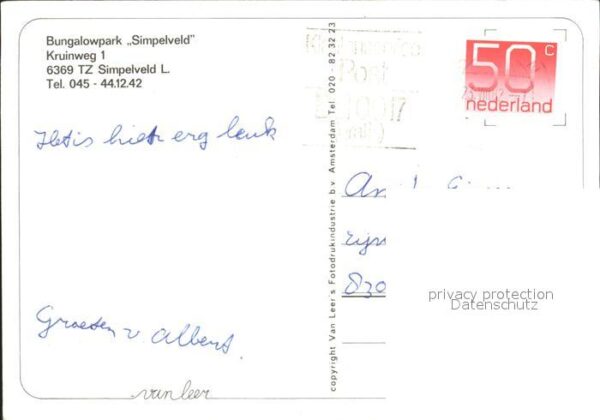 Bungalowpark „Simpelveld”
Kruinweg 1
6369 TZ Simpelveld L.
Tel. 045 - 44.12.42
Het is hier erg leuk
Groeten v. Albert.
van leer
copyright Van Leer's Fotodrukindustrie b.v. Amsterdam Tel. 020 - 82 32 23
50 c
nederland
830
privacy protection
Datenschutz